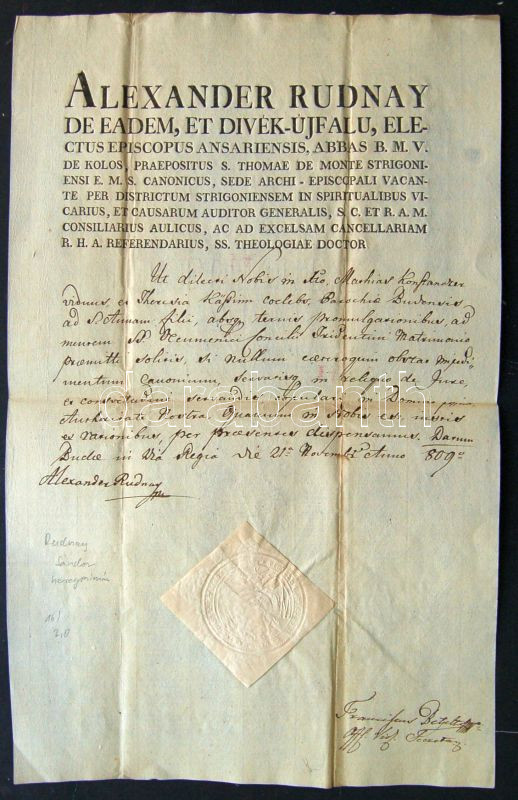 ALEXANDER RUDNAY
DE EADEM, ET DIVÉK-ÚJFALU, ELE-
CTUS EPISCOPUS ANSARIENSIS, ABBAS B. M. V.
DE KOLOS, PRAEPOSITUS S. THOMAE DE MONTE STRIGONI-
ENSI E. M. S. CANONICUS, SEDE ARCHI-EPISCOPALI VACAN-
TE PER DISTRICTUM STRIGONIENSEM IN SPIRITUALIBUS VI-
CARIUS, ET CAUSARUM AUDITOR GENERALIS, S. C. ET R. A. M.
CONSILIARIUS AULICUS, AC AD EXCELSAM CANCELLARIAM
R. H. A. REFERENDARIUS, SS. THEOLOGIAE DOCTOR
Ut dilecti Nobis in Mathias
viduus, et Theresia coelebs, Parochiae Budensis
ad S. Annam filii, absq ternis promulgationibus, ad
mentem SS Oecumenici Concilii Tridentini Matrimonio
praemitti solitis, si nullum obstat impedi-
mentum canonicum, servatisq in reliquo de Jure,
et consvetudine servandis copulari in Domino
Authoritate Nostra in Nobis est,
ex rationibus, per praesentes dispensamus. Datum
Budae in Via Regia die 21a Novembris Anno 809o
Alexander Rudnay
Rudnay
Sándor
hercegprímás
16/
2,0
darabanth
Franciscus